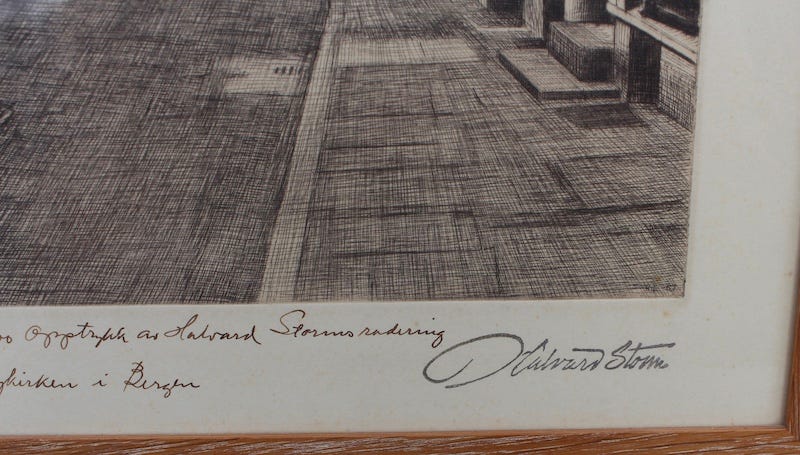 oo Opptrykk av Halvard Storms radering
gkirken i Bergen
Halvard Storm